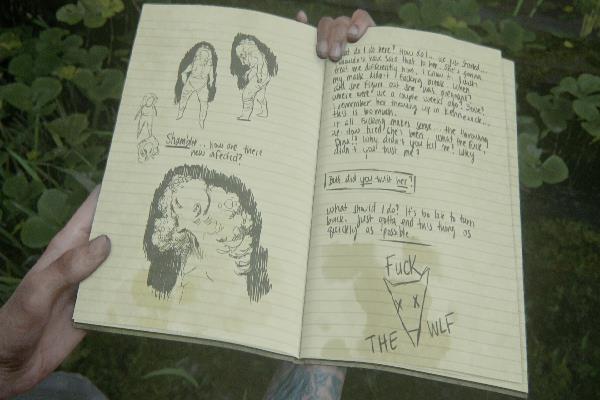 Shambler.. how are there
new infected?
What do I do here? How do I... we just started..
shouldn't have said that to her. She's gonna
treat me differently now. I know it. Wish
my mask didn't fucking break. When
did she figure out she was pregnant?
where were we a couple weeks ago? Save?
I remember her throwing up in Kennewick...
this is too much.
it all fucking makes sense... the throwing
up, how tired she's been... what the fuck,
Dina!! Why didn't you tell me? Why
didn't you trust me?
But did you trust her?
What should I do? It's too late to turn
back. Just gotta end this thing as
quickly as possible.
Fuck
THE WLF